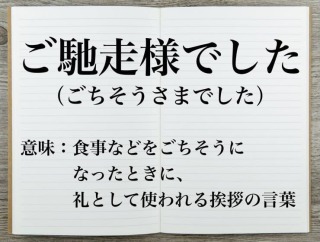 ご馳走様でした
（ごちそうさまでした）
意味：食事などをごちそうに
なったときに、
礼として使われる挨拶の言葉